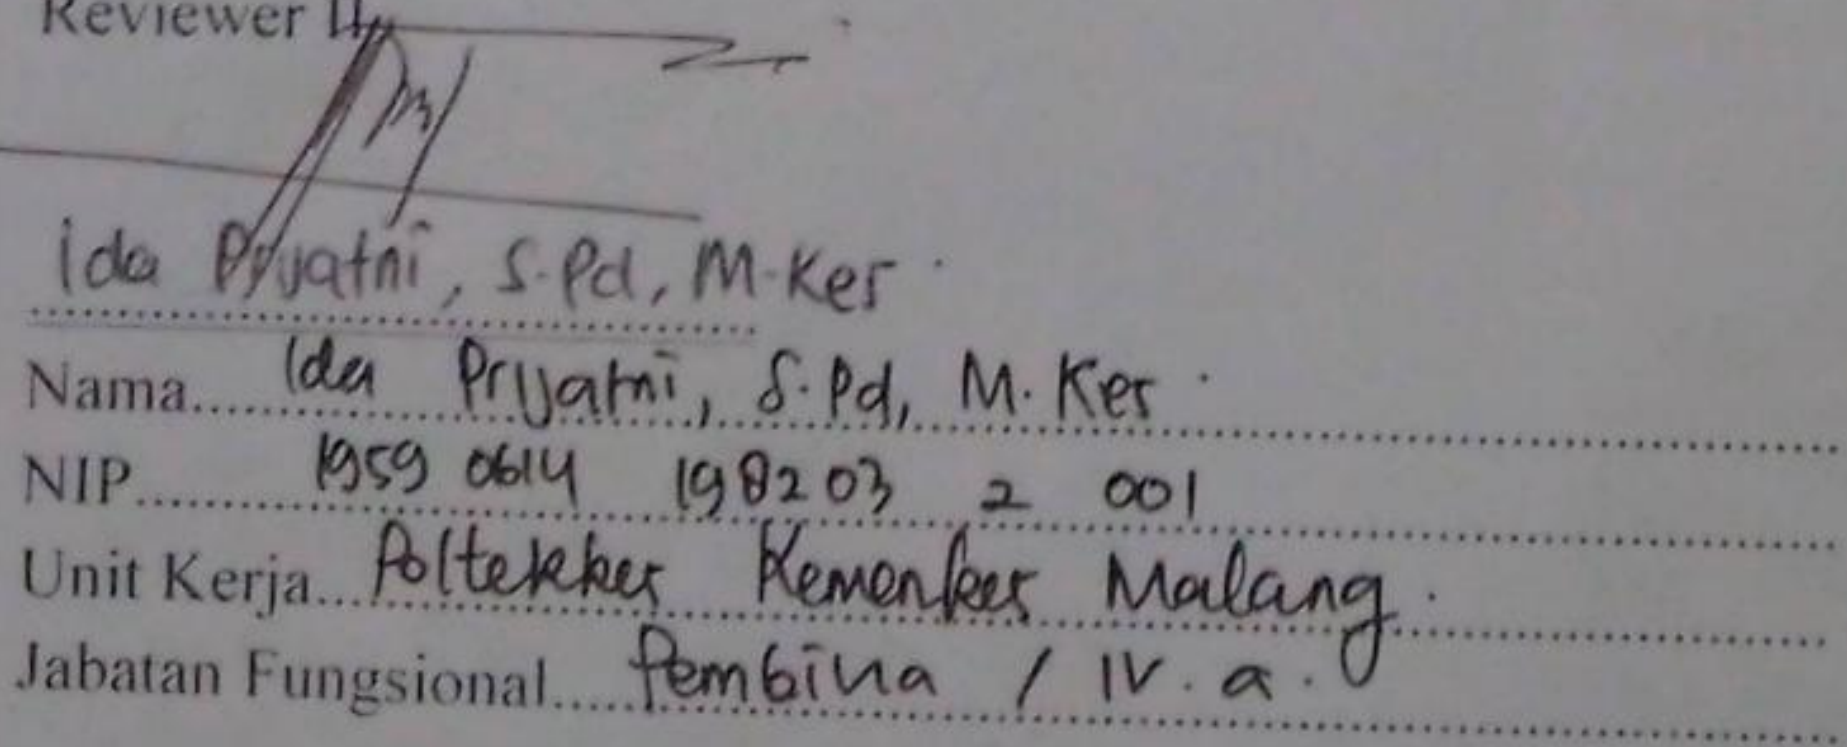 Reviewer II
Ida Prijatni, S.Pd, M.Kes
Nama..... Ida Prijatni, S.Pd, M.Kes
NIP..... 1959 0614 198203 2 001
Unit Kerja... Poltekkes Kemenkes Malang.
Jabatan Fungsional..... Pembina / IV.a.